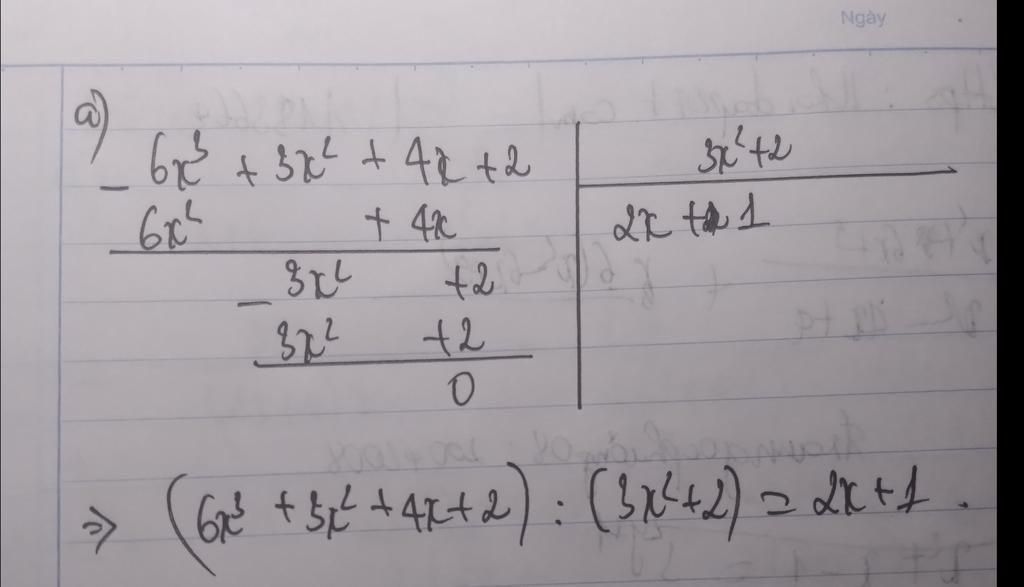 Ngày
a)
- 6x³ + 3x² + 4x + 2 | 3x² + 2
6x² + 4x | 2x + 1
- 3x² + 2
3x² + 2
0
⇒ (6x³ + 3x² + 4x + 2) : (3x² + 2) = 2x + 1.